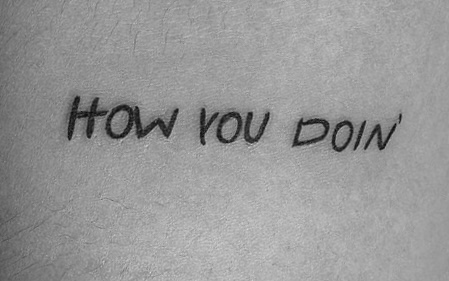 HOW YOU DOIN'